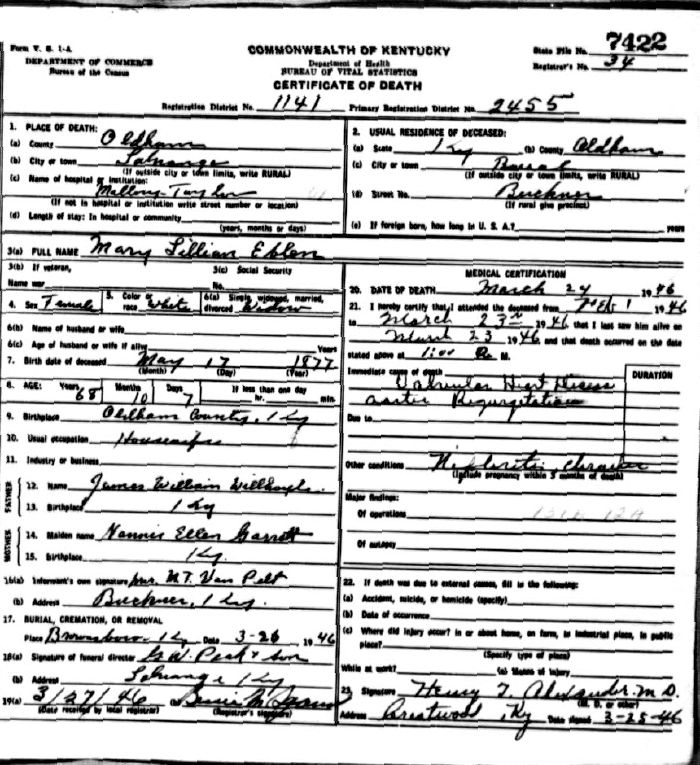 Form V. S. 1-A
DEPARTMENT OF COMMERCE
Bureau of the Census
COMMONWEALTH OF KENTUCKY
Department of Health
BUREAU OF VITAL STATISTICS
CERTIFICATE OF DEATH
State File No. 7422
Registrar's No. 34
Registration District No. 1141 Primary Registration District No. 2455
1. PLACE OF DEATH:
(a) County Oldham
(b) City or town LaGrange
(If outside city or town limits, write RURAL)
(c) Name of hospital or institution:
Mallory-Taylor
(If not in hospital or institution write street number or location)
(d) Length of stay: In hospital or community
(years, months or days)
2. USUAL RESIDENCE OF DECEASED:
(a) State Ky (b) County Oldham
(c) City or town Rural
(If outside city or town limits, write RURAL)
(d) Street No. Buckner
(If rural give precinct)
(e) If foreign born, how long in U. S. A.? years
3(a) FULL NAME Mary Lillian Eblen
3(b) If veteran, 3(c) Social Security
Name war No.
4. Sex Female 5. Color or race White 6(a) Single, widowed, married, divorced Widow
6(b) Name of husband or wife
6(c) Age of husband or wife if alive Years
7. Birth date of deceased May 17 1877
(Month) (Day) (Year)
8. AGE: Years 68 Months 10 Days 7 If less than one day
hr. min.
9. Birthplace Oldham County, Ky
10. Usual occupation Housewife
11. Industry or business
FATHER
12. Name James William Willhoyte
13. Birthplace Ky
MOTHER
14. Maiden name Nannie Ellen Garrett
15. Birthplace Ky.
16(a) Informant's own signature Mrs. M.T. Van Pelt
(b) Address Buckner, Ky.
17. BURIAL, CREMATION, OR REMOVAL
Place Brownsboro Ky Date 3-26 1946
18(a) Signature of funeral director G.W. Peak & Son
(b) Address LaGrange Ky
19(a) 3/27/46 (b)
(Date received by local registrar) (Registrar's signature)
MEDICAL CERTIFICATION
20. DATE OF DEATH March 24 1946
21. I hereby certify that I attended the deceased from Feb 1 1946
to March 23rd 1946 that I last saw him alive on
March 23 1946 and that death occurred on the date
stated above at 1:00 M.
Immediate cause of death DURATION
Valvular Heart Disease
Aortic Regurgetation
Due to
Other conditions Nephritis, chronic
(Include pregnancy within 3 months of death)
Major findings:
Of operations
Of autopsy
22. If death was due to external causes, fill in the following:
(a) Accident, suicide, or homicide (specify)
(b) Date of occurrence
(c) Where did injury occur? In or about home, on farm, in industrial place, in public
place?
(Specify type of place)
While at work? (e) Means of injury
23. Signature Henry T. Alexander M.D.
(M. D. or other)
Address Crestwood, Ky Date signed 3-25-46